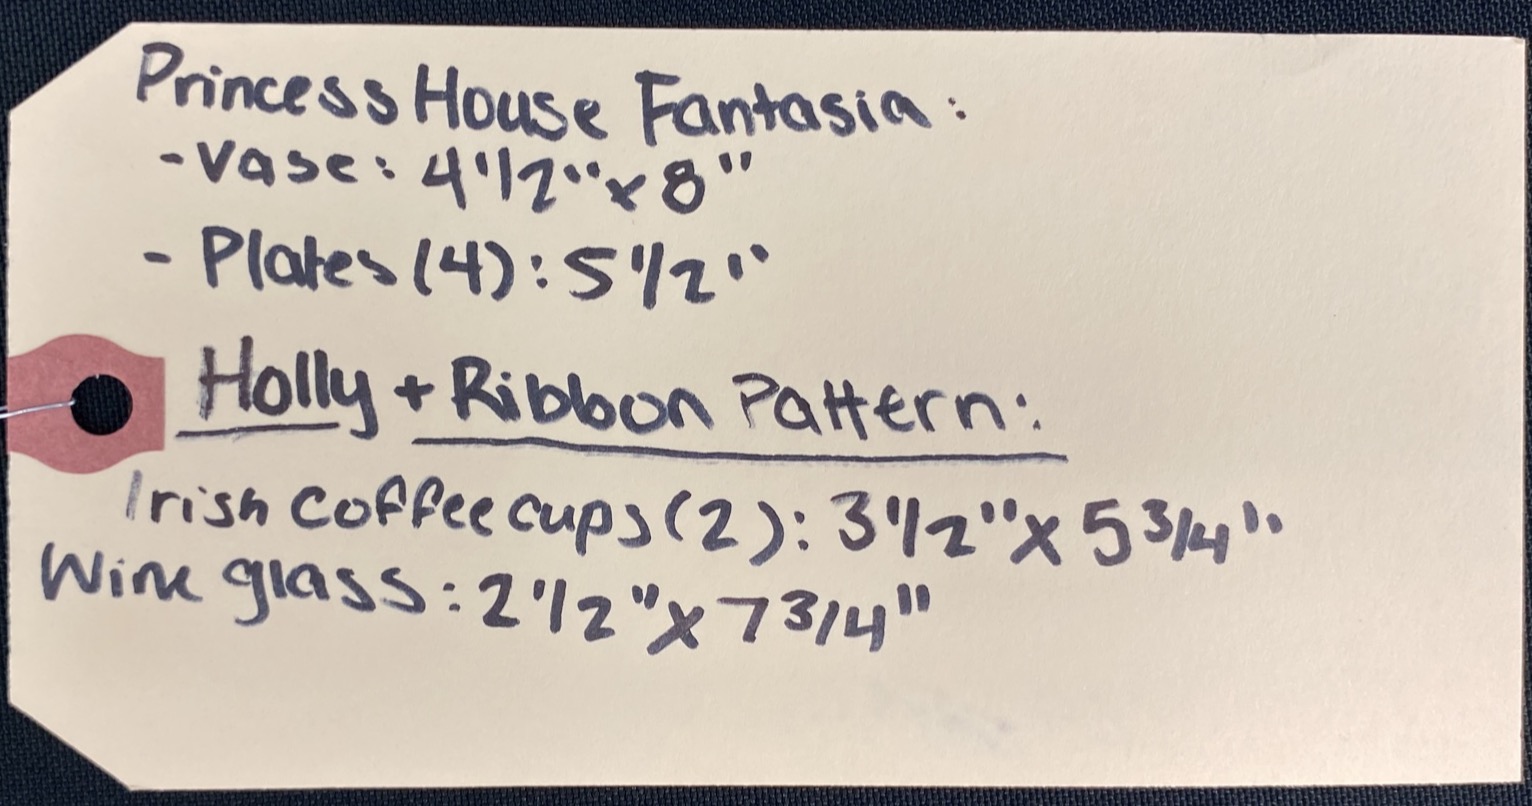 Princess House Fantasia:
- Vase: 4 1/2" x 8"
- Plates (4): 5 1/2"
Holly + Ribbon Pattern:
Irish coffee cups (2): 3 1/2" x 5 3/4"
Wine glass: 2 1/2" x 7 3/4"